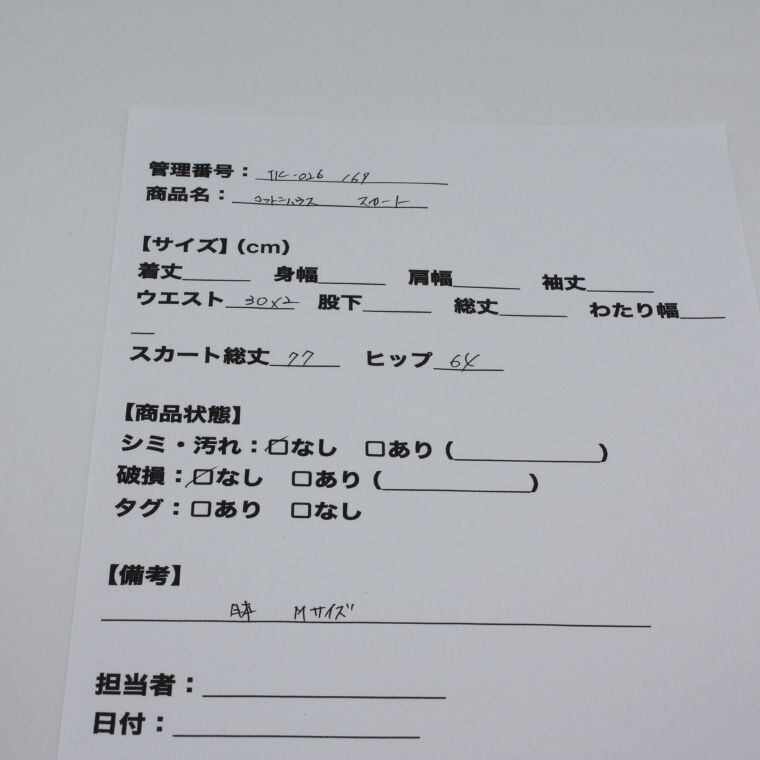 管理番号： TK-026 169
商品名： コットンハウス スカート
【サイズ】(cm)
着丈______ 身幅______ 肩幅______ 袖丈______
ウエスト 30×2 股下______ 総丈______ わたり幅____
__
スカート総丈 77 ヒップ 64
【商品状態】
シミ・汚れ：☑なし □あり (_____________)
破損：☑なし □あり (_____________)
タグ：□あり □なし
【備考】
日本 Mサイズ
担当者：____________________
日付：____________________